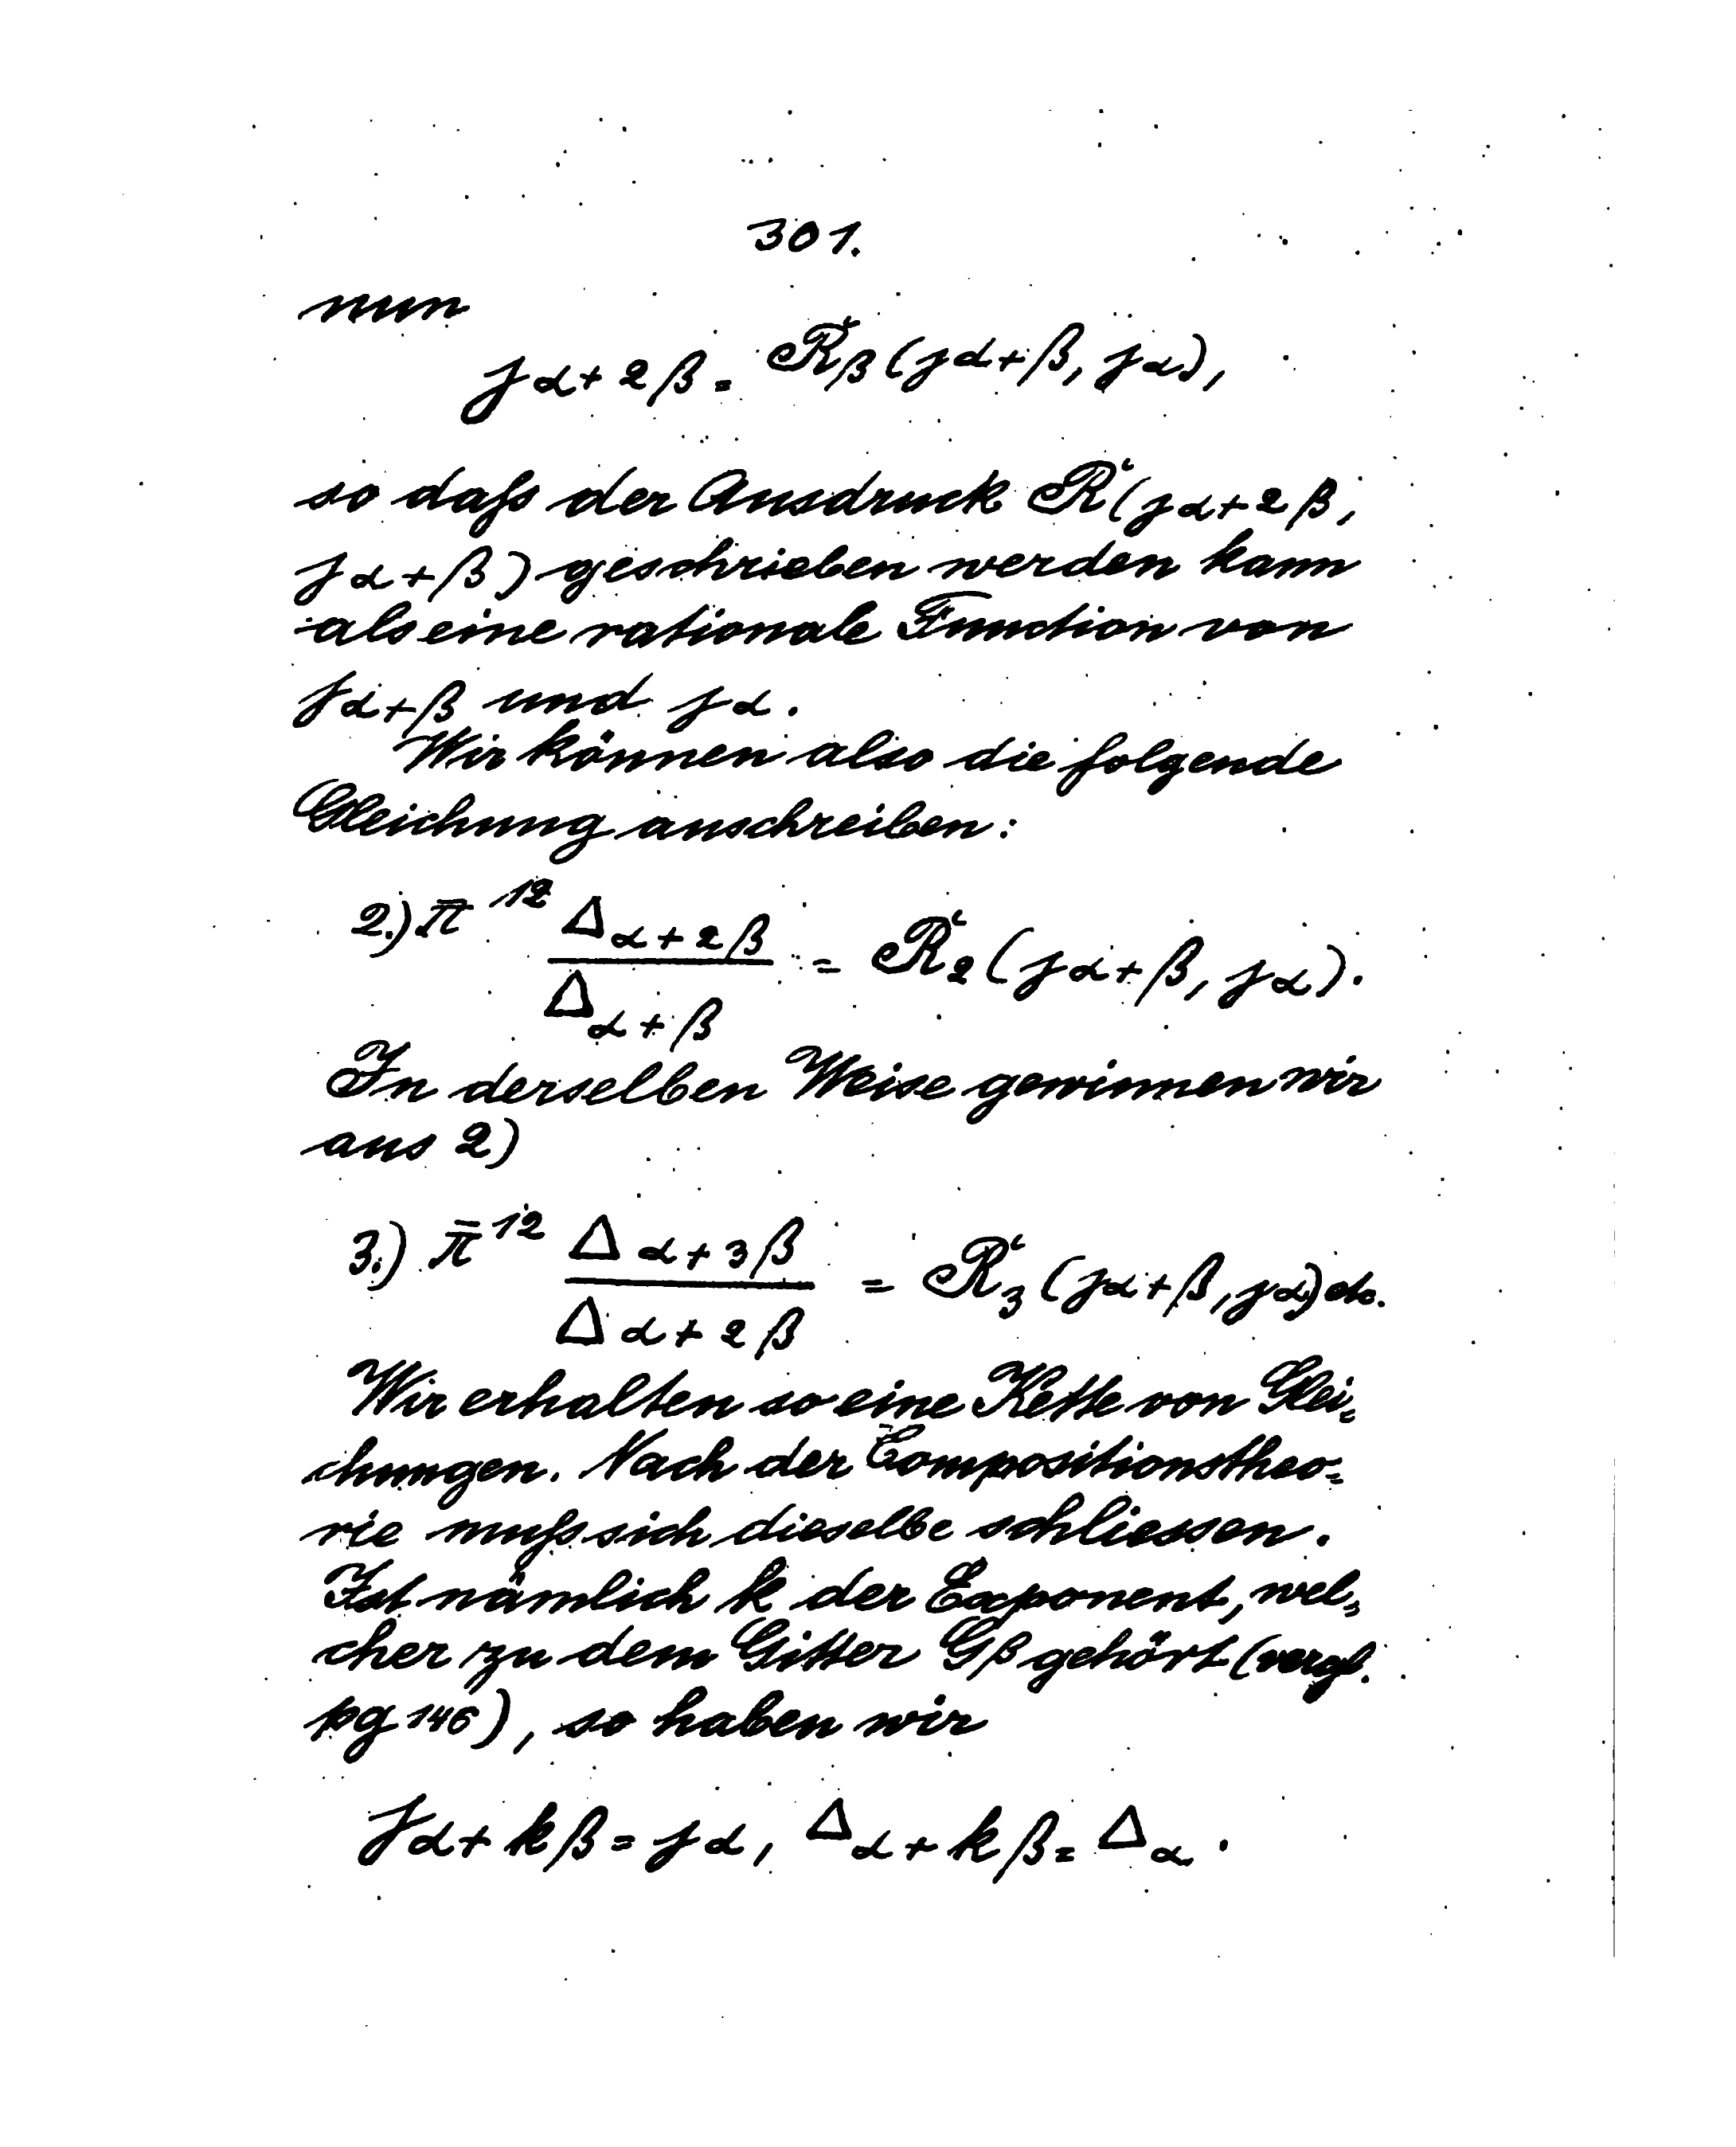 301.
nun
j α + 2 β = R̛ β (j α + β, j α),
so daß der Ausdruck R̛ (j α + 2 β,
j α + β) geschrieben werden kann
als eine rationale Function von
j α + β und j α.
Wir können also die folgende
Gleichung anschreiben:
2.) π̄ ¹² Δ α + 2 β / Δ α + β = R̛ ₂ (j α + β, j α).
In derselben Weise gewinnen wir
aus 2)
3.) π̄ ¹² Δ α + 3 β / Δ α + 2 β = R̛ ₃ (j α + β, j α) etc.
Wir erhalten so eine Kette von Glei-
chungen. Nach der Compositionstheo-
rie muß sich dieselbe schliessen.
Ist nämlich k der Exponent, wel-
cher zu dem Gitter G β gehört (vergl.
pg 146), so haben wir
j α + k β = j α, Δ α + k β = Δ α.